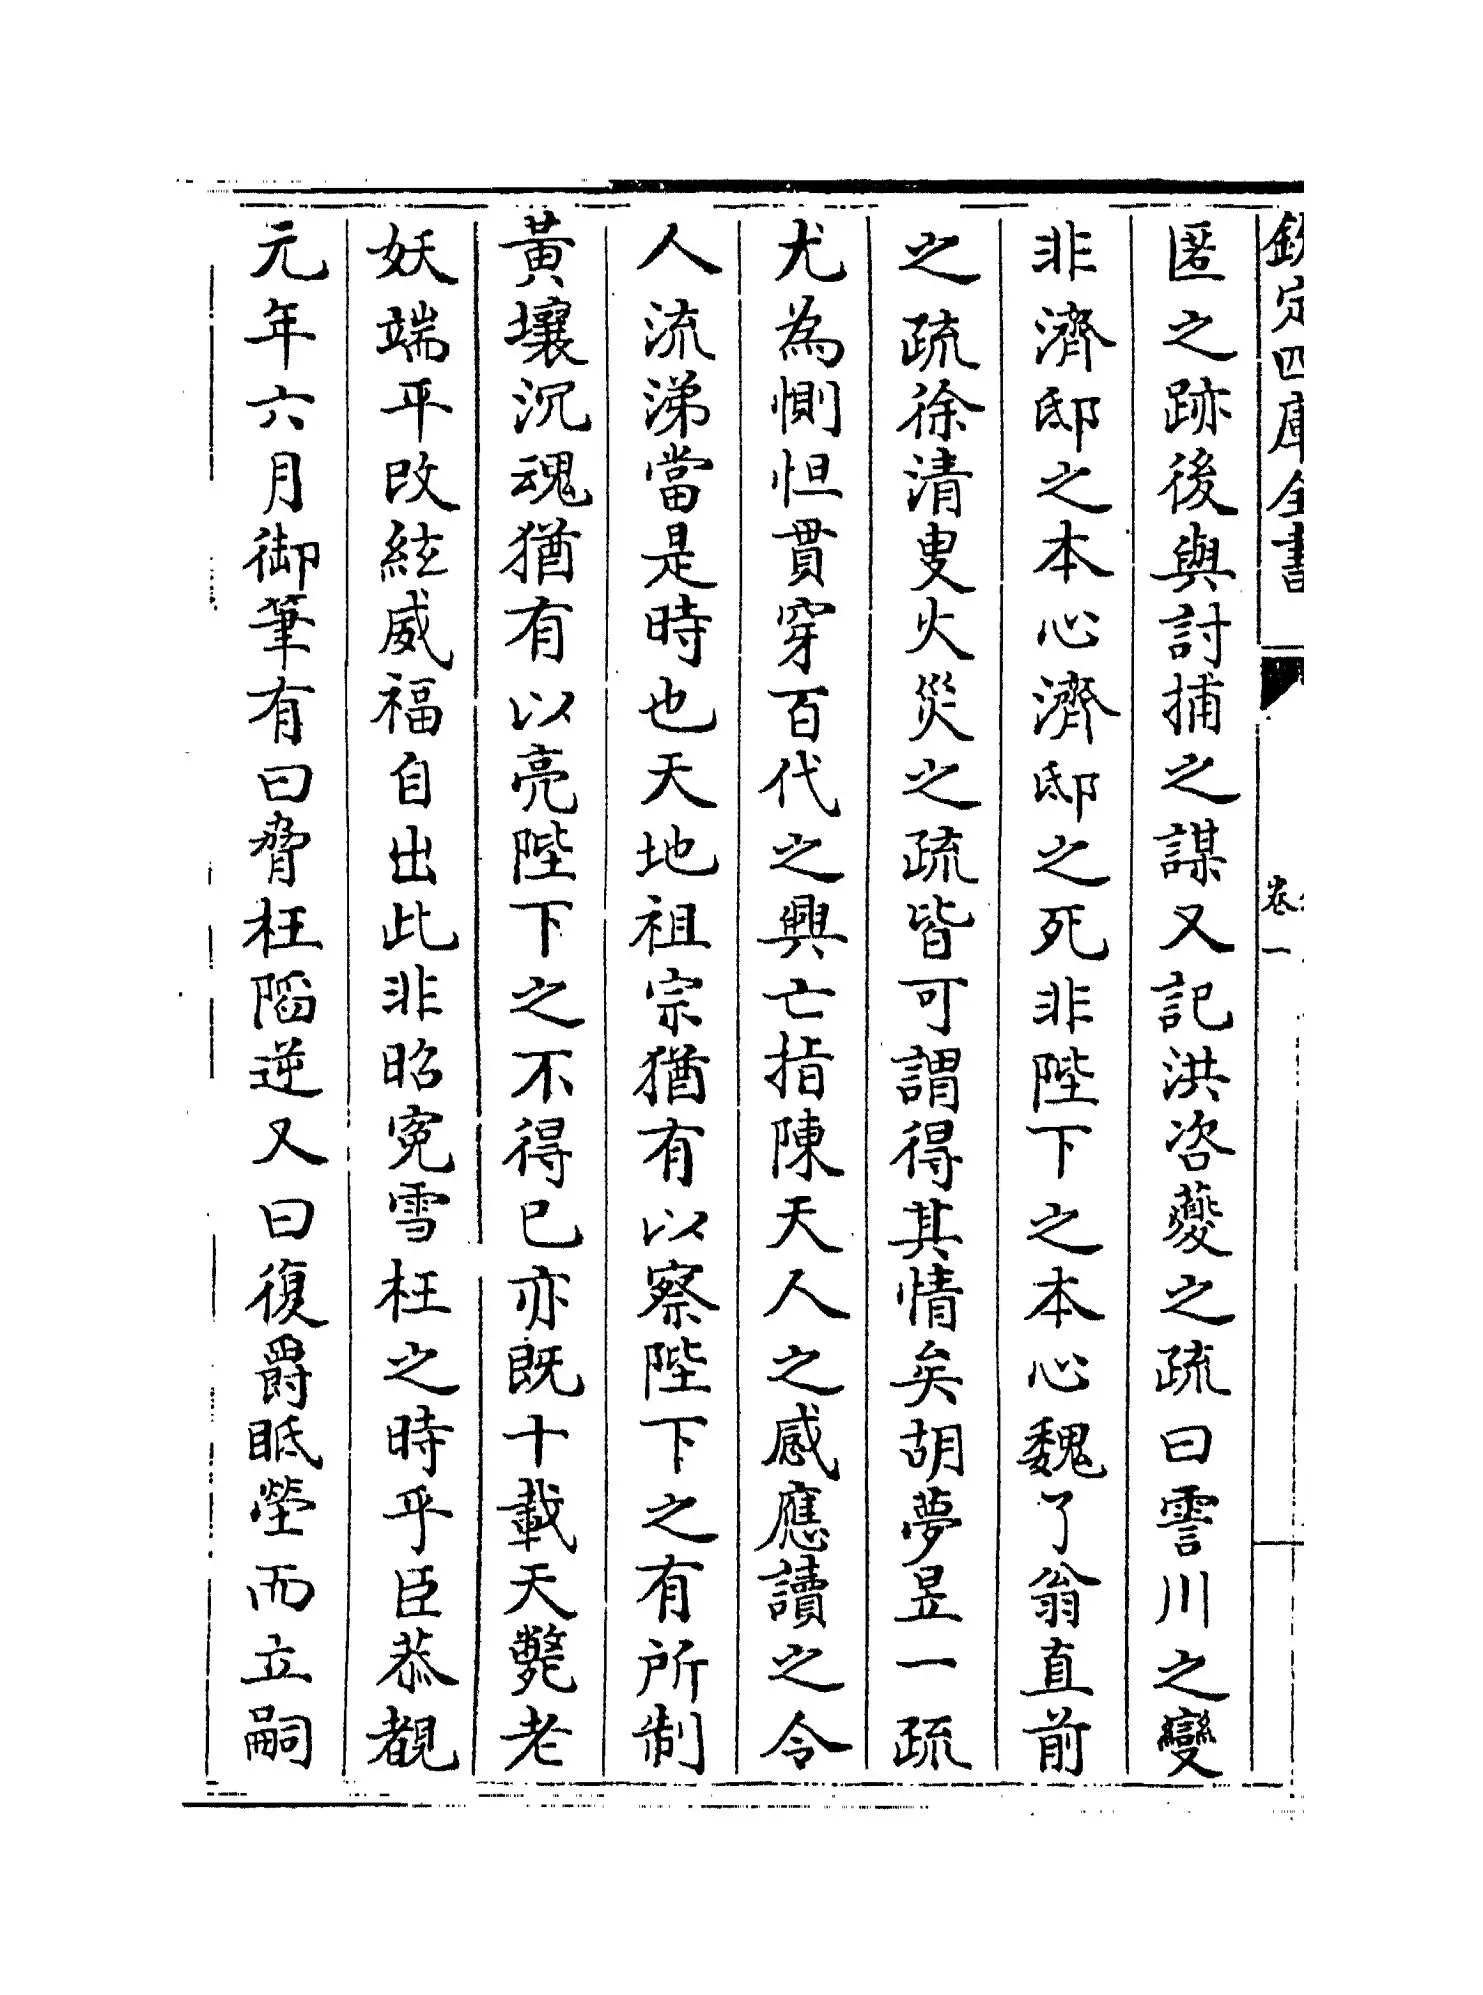 欽定四庫全書
卷一
匿之跡後與討捕之謀又記洪咨夔之疏曰霅川之變
非濟邸之本心濟邸之死非陛下之本心魏了翁直前
之疏徐清叟火災之疏皆可謂得其情矣胡夢昱一疏
尤為惻怛貫穿百代之興亡指陳天人之感應讀之令
人流涕當是時也天地祖宗猶有以察陛下之有所制
黄壤沉魂猶有以亮陛下之不得已亦既十載天斃老
妖端平改絃威福自出此非昭寃雪枉之時乎臣恭覩
元年六月御筆有曰脅枉陷逆又曰復爵眡塋而立嗣